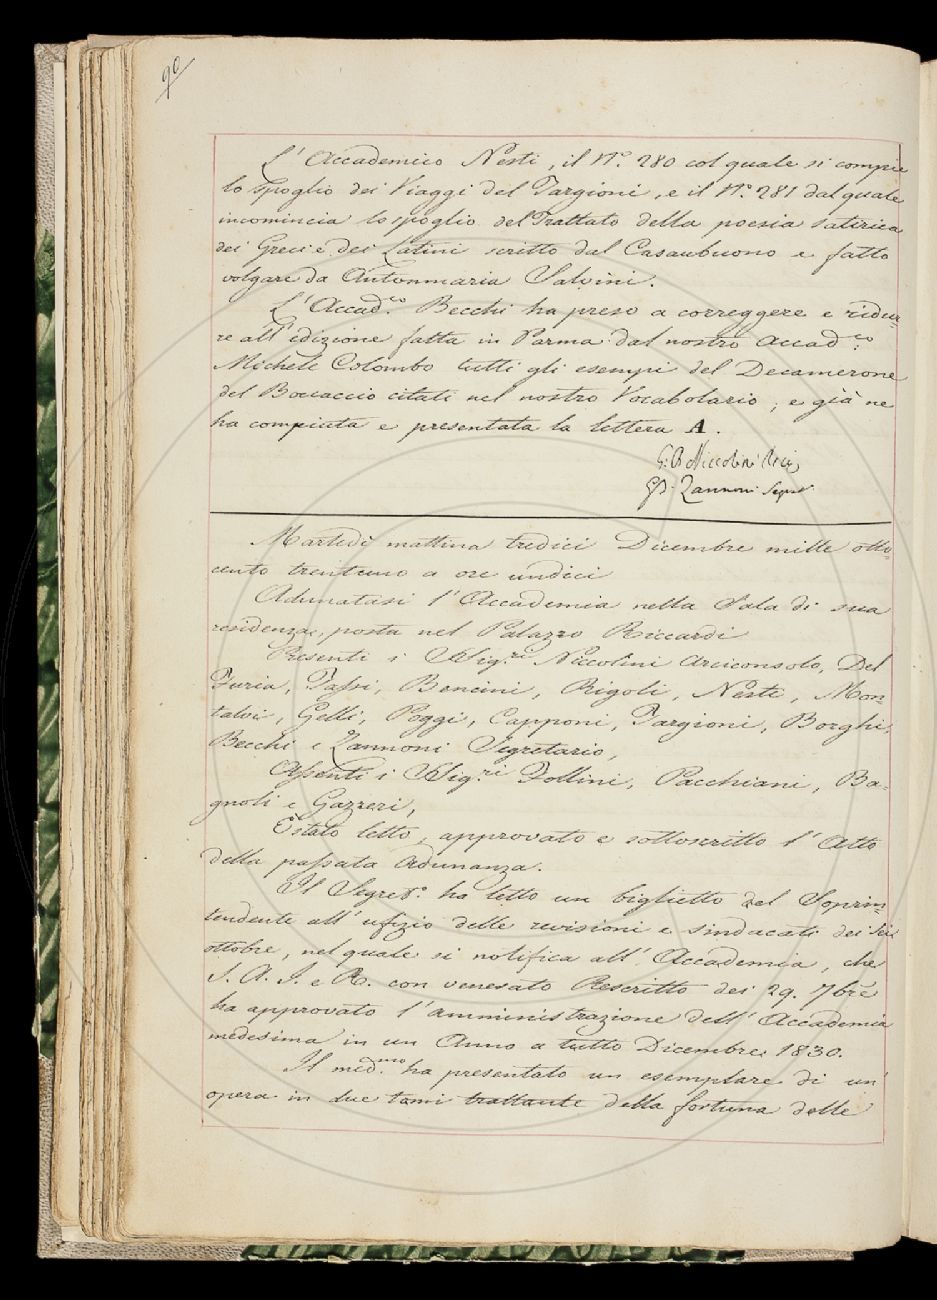 90
L' Accademico Nesti, il N.° 280 col quale si compie
lo spoglio dei Viaggi del Targioni, e il N.° 281 dal quale
incomincia lo spoglio del Trattato della poesia satirica
dei Greci e dei Latini scritto dal Casaubuono e fatto
volgare da Antonmaria Salvini.
L' Accad.co Becchi ha preso a correggere e ridur-
re all' edizione fatta in Parma dal nostro Accad.co
Michele Colombo tutti gli esempi del Decamerone
del Boccaccio citati nel nostro Vocabolario; e già ne
ha compiuta e presentata la lettera A.
G. B. Niccolini
G. B. Zannoni Segret.
Martedì mattina tredici Dicembre mille otto-
cento trentuno a ore undici
Adunatasi l' Accademia nella Sala di sua
residenza, posta nel Palazzo Riccardi
Presenti i SSig.ri Niccolini Arciconsolo, Del
Furia, Tassi, Bencini, Rigoli, Nesti, Mon-
talvi, Gelli, Poggi, Capponi, Targioni, Borghi,
Becchi e Zannoni Segretario,
Assenti i SSig.ri Follini, Pacchiani, Ba-
gnoli e Gazzeri,
È stato letto, approvato e sottoscritto l' Atto
della passata Adunanza.
Il Segret.° ha letto un biglietto del Soprin-
tendente all' ufizio delle revisioni e sindacati dei sei
ottobre, nel quale si notifica all' Accademia, che
S. A. I. e R. con venerato Rescritto dei 29. 7bre
ha approvato l' amministrazione dell' Accademia
medesima in un Anno a tutto Dicembre 1830.
Il med.mo ha presentato un esemplare di un'
opera in due tomi trattante della fortuna delle